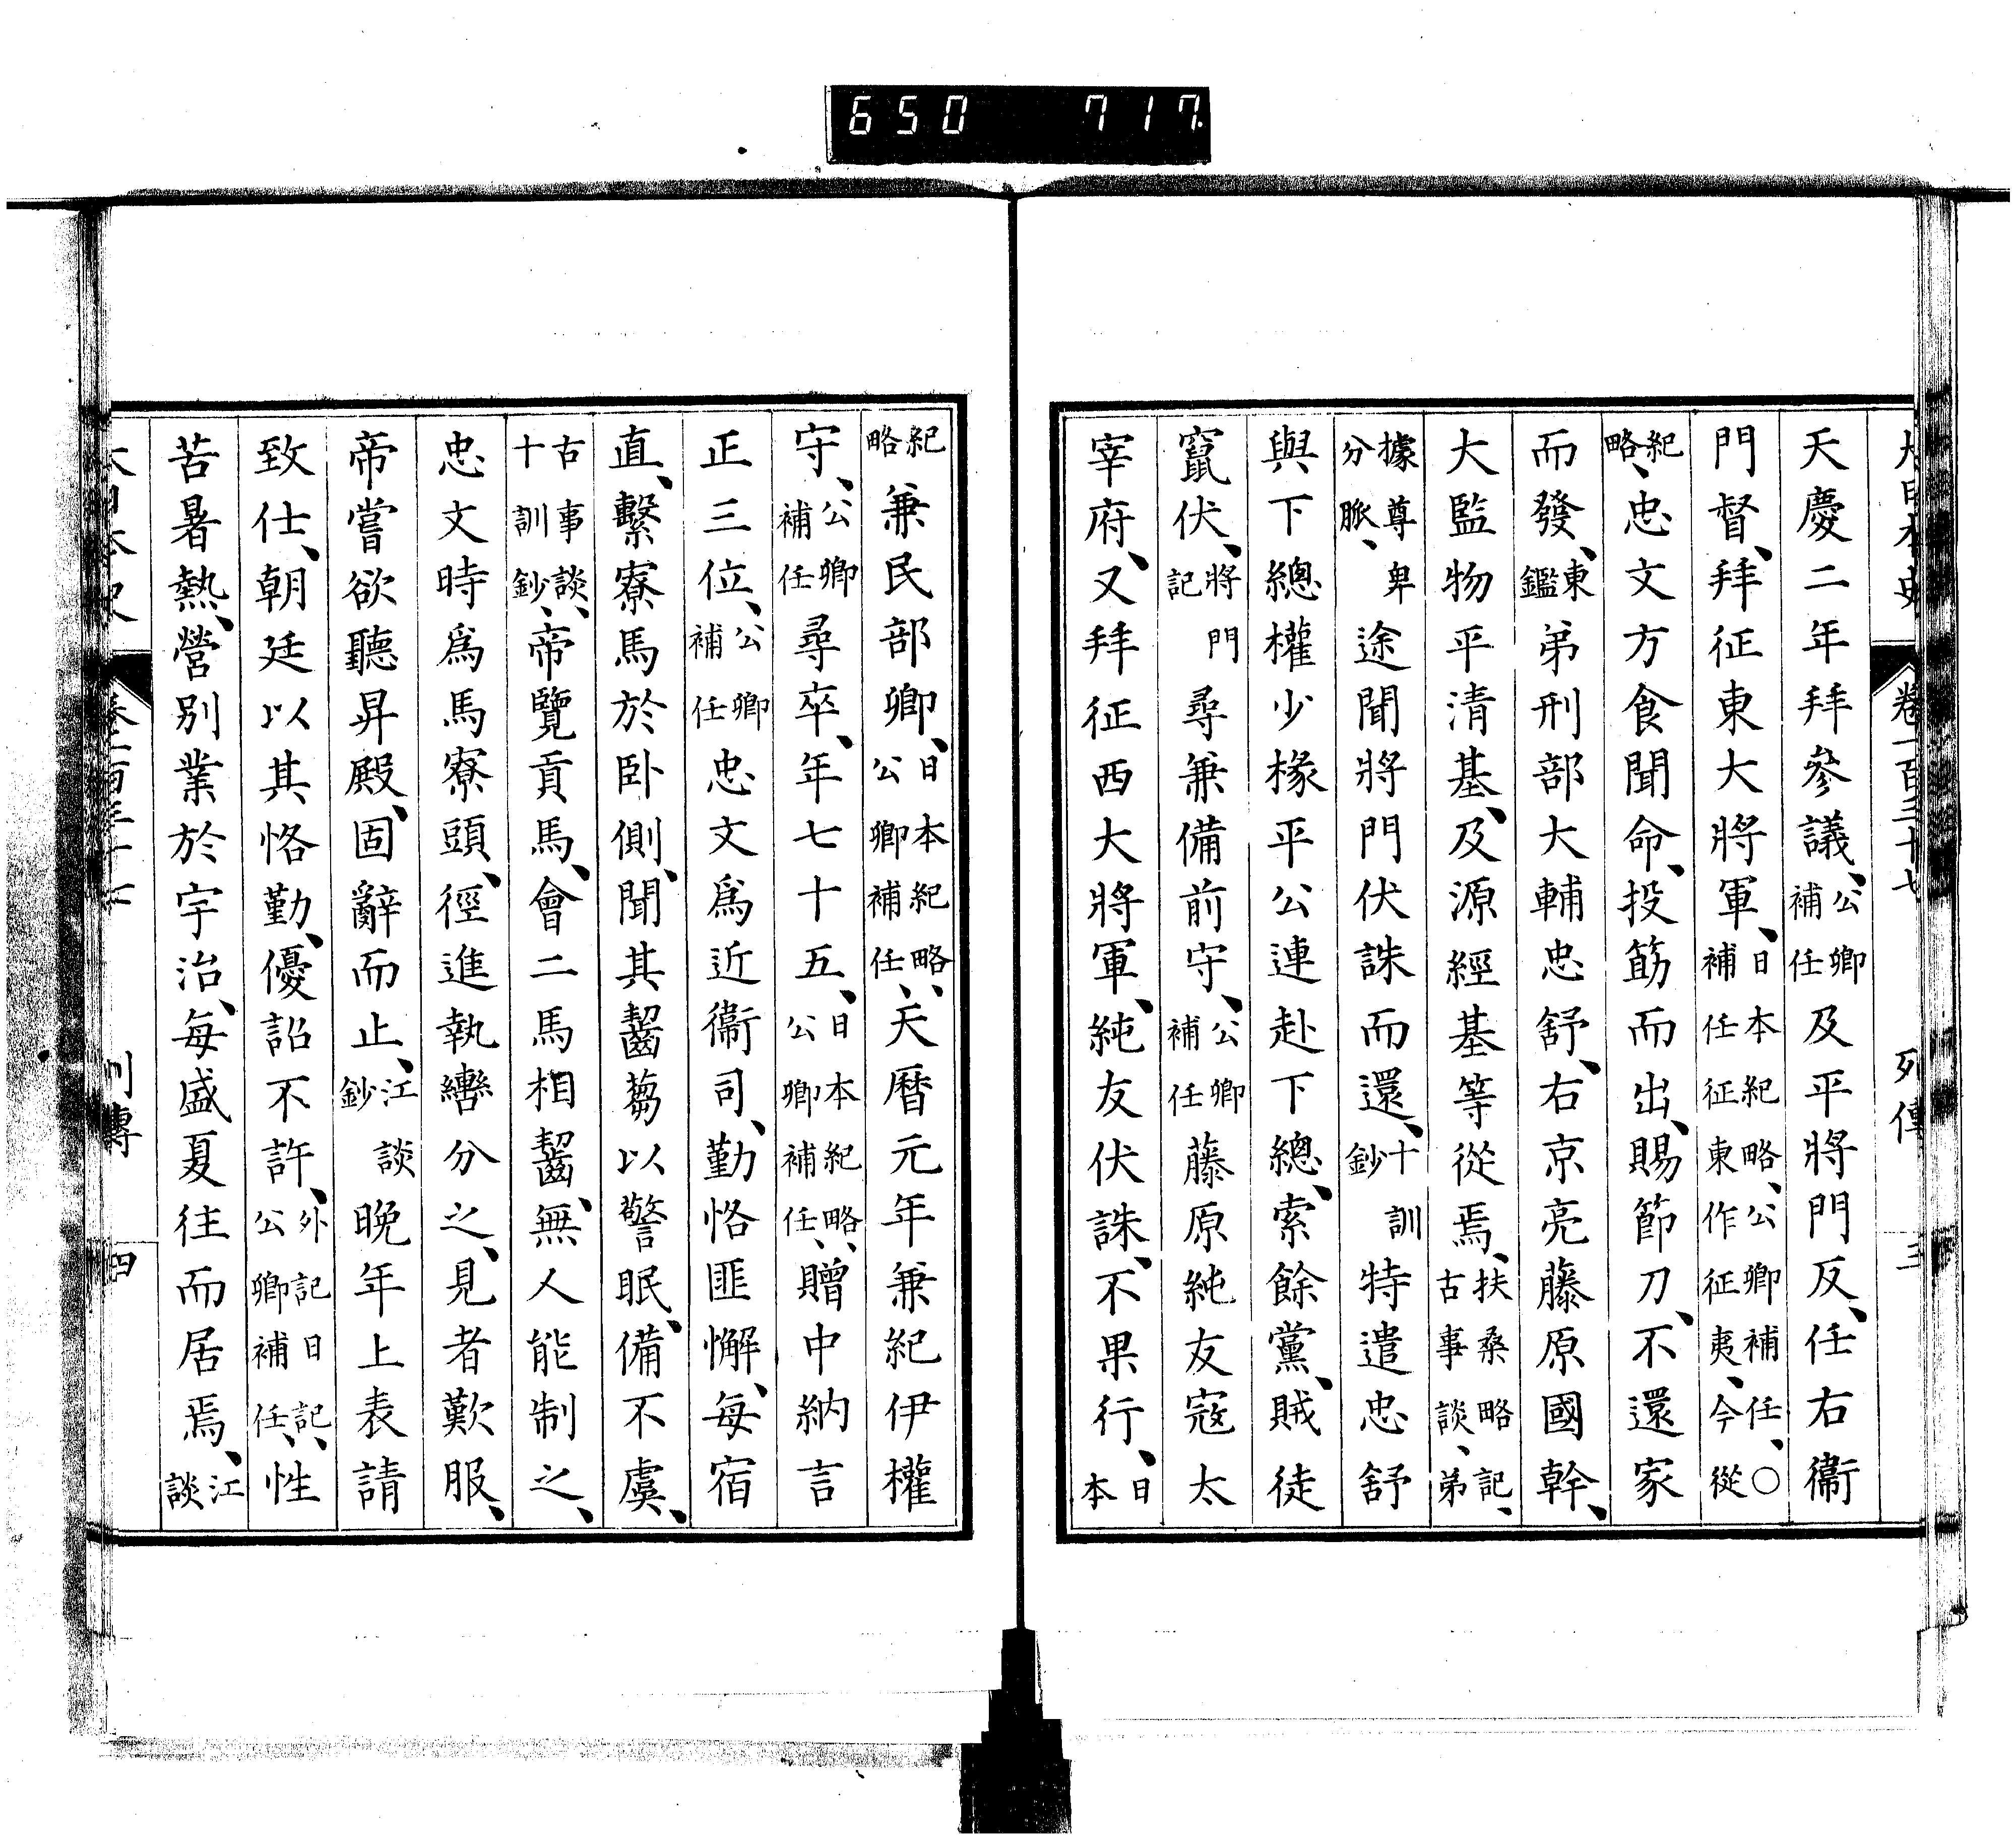 650 717
大日本史 卷一百三十七 列傳 三
天慶二年拜參議、公卿補任及平將門反、任右衞
門督、拜征東大將軍、日本紀略、公卿補任、○補任征東作征夷、今從
紀略、忠文方食聞命、投筯而出、賜節刀、不還家
而發、東鑑弟刑部大輔忠舒、右京亮藤原國幹、
大監物平清基、及源經基等從焉、扶桑略記、古事談、弟
據尊卑分脈、途聞將門伏誅而還、十訓鈔特遣忠舒
與下總權少掾平公連赴下總、索餘黨、賊徒
竄伏、將門記尋兼備前守、公卿補任藤原純友寇太
宰府、又拜征西大將軍、純友伏誅、不果行、日本
紀略兼民部卿、日本紀略、公卿補任、天曆元年兼紀伊權
守、公卿補任尋卒、年七十五、日本紀略、公卿補任、贈中納言
正三位、公卿補任忠文爲近衞司、勤恪匪懈、每宿
直、繫寮馬於卧側、聞其齧蒭以警眠、備不虞、
古事談、十訓鈔、帝覽貢馬、會二馬相齧、無人能制之、
忠文時爲馬寮頭、徑進執轡分之、見者歎服、
帝嘗欲聽昇殿、固辭而止、江談鈔晚年上表請
致仕、朝廷以其恪勤、優詔不許、外記日記、公卿補任、性
苦暑熱、營別業於宇治、每盛夏往而居焉、江談
大日本史 卷一百三十七 列傳 四